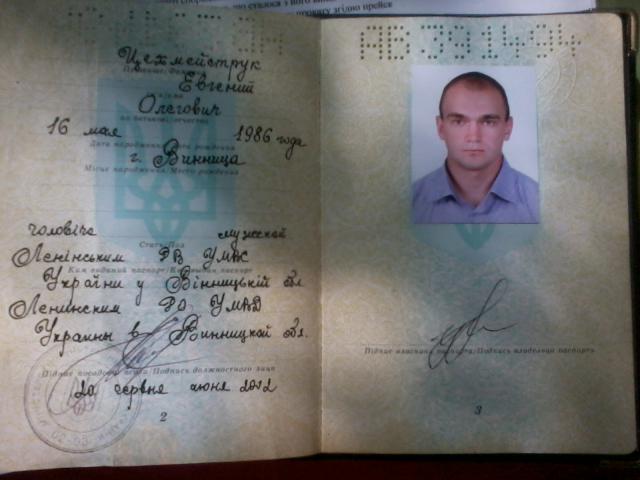 Цехмейструк
Евгений
Олегович
по батькові/отчество
16 мая 1986 года
Дата народження/Дата рождения
г. Винница
Місце народження/Место рождения
чоловіча мужской
Стать/Пол
Ленінським РВ УМВС
Ким виданий паспорт/Кем выдан паспорт
України у Вінницькій обл.
Ленинским РО УМВД
Украины в Винницкой обл.
Підпис посадової особи/Подпись должностного лица
20 червня июня 2002
2
Підпис власника паспорта/Подпись владельца паспорта
3